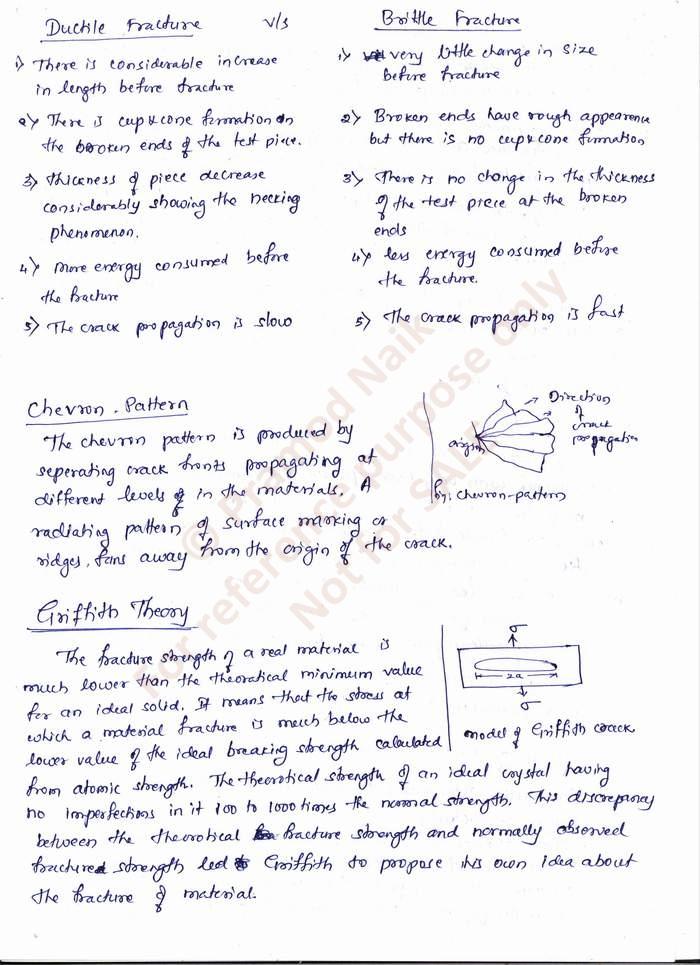 Ductile Fracture V/s Brittle Fracture
1) There is considerable increase
in length before fracture
2) There is cup & cone formation on
the broken ends of the test piece.
3) thickness of piece decrease
considerably showing the necking
phenomenon.
4) more energy consumed before
the fracture
5) The crack propagation is slow
1) very little change in size
before fracture
2) Broken ends have rough appearence
but there is no cup & cone formation
3) There is no change in the thickness
of the test piece at the broken
ends
4) less energy consumed before
the fracture.
5) The crack propagation is fast
Chevron-Pattern
The chevron pattern is produced by
seperating crack fronts propagating at
different levels of in the materials. A
radiating pattern of surface marking or
ridges, fans away from the origin of the crack.
Direction
of
crack
propagation
origin
fig: chevron-pattern
Griffith Theory
The fracture strength of a real material is
much lower than the theoratical minimum value
for an ideal solid. It means that the stress at
which a material fracture is much below the
lower value of the ideal breaking strength calculated
from atomic strength. The theorotical strength of an ideal crystal having
no imperfections in it 100 to 1000 times the normal strength. This discrepancy
between the theorotical fracture strength and normally observed
fracture strength led to Griffith to propose his own idea about
the fracture of material.
σ
2a
σ
model of Griffith crack
© Pramod Naik
For reference purpose only
Not for SALE